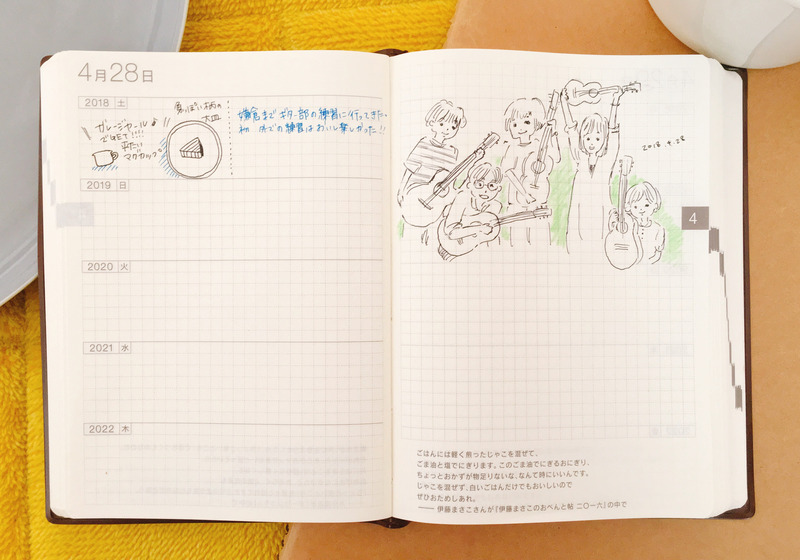 4月28日
2018 土
ガレージセール♪
でGET!!!!
夏っぽい柄の
大皿
マグカップ
鎌倉までギター部の練習に行ってきた。
での練習はおいし楽しかった!!
2019 日
2020 火
2021 水
2022 木
2018.4.28
4
ごはんには軽く煎ったじゃこを混ぜて、
ごま油と塩でにぎります。このごま油でにぎるおにぎり、
ちょっとおかずが物足りないな、なんて時にいいんです。
じゃこを混ぜず、白いごはんだけでもおいしいので
ぜひおためしあれ。
── 伊藤まさこさんが『伊藤まさこのおべんと帖 二〇一六』の中で